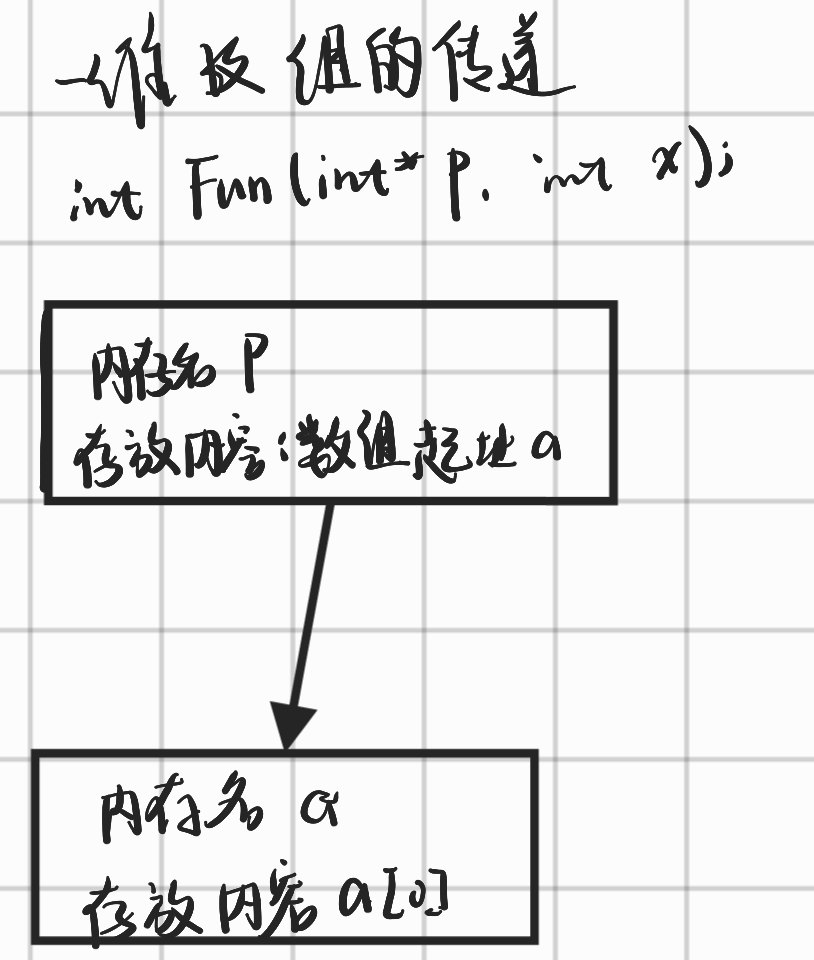 一维数组的传递
int Fun(int* p, int x);
内存名 P
存放内容:数组起址 a
内存名 a
存放内容 a[0]